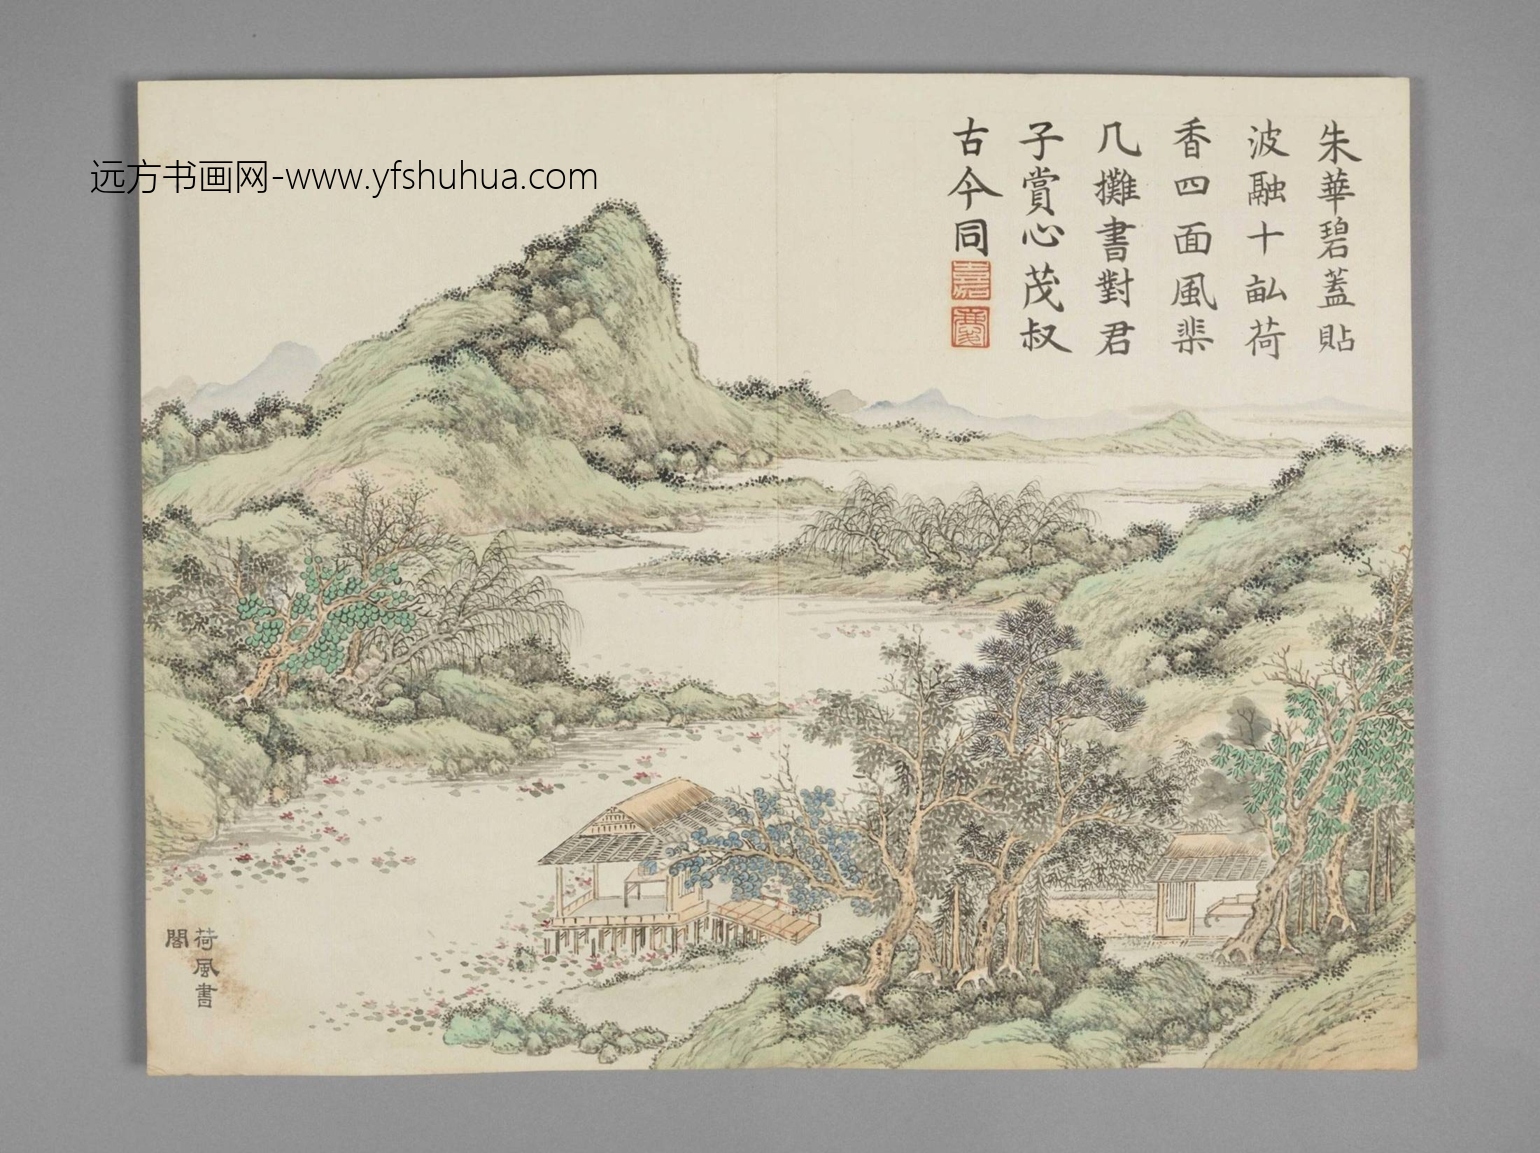 远方书画网-www.yfshuhua.com
朱華碧蓋貼
波融十畝荷
香四面風棐
几攤書對君
子賞心茂叔
古今同
荷風書
閣